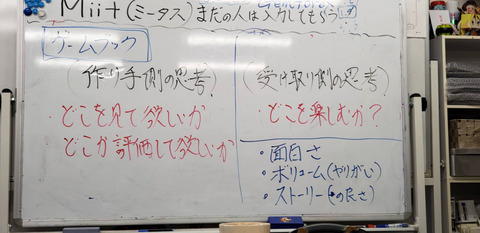 Mii+(ミータス)まだの人は入力してもらう
ゲームブック
(作り手側の思考)
どこを見て欲しいか
どこが評価して欲しいか
(受け取り側の思考)
どこを楽しむか?
・面白さ
・ボリューム(やりがい)
・ストーリー(の良さ)